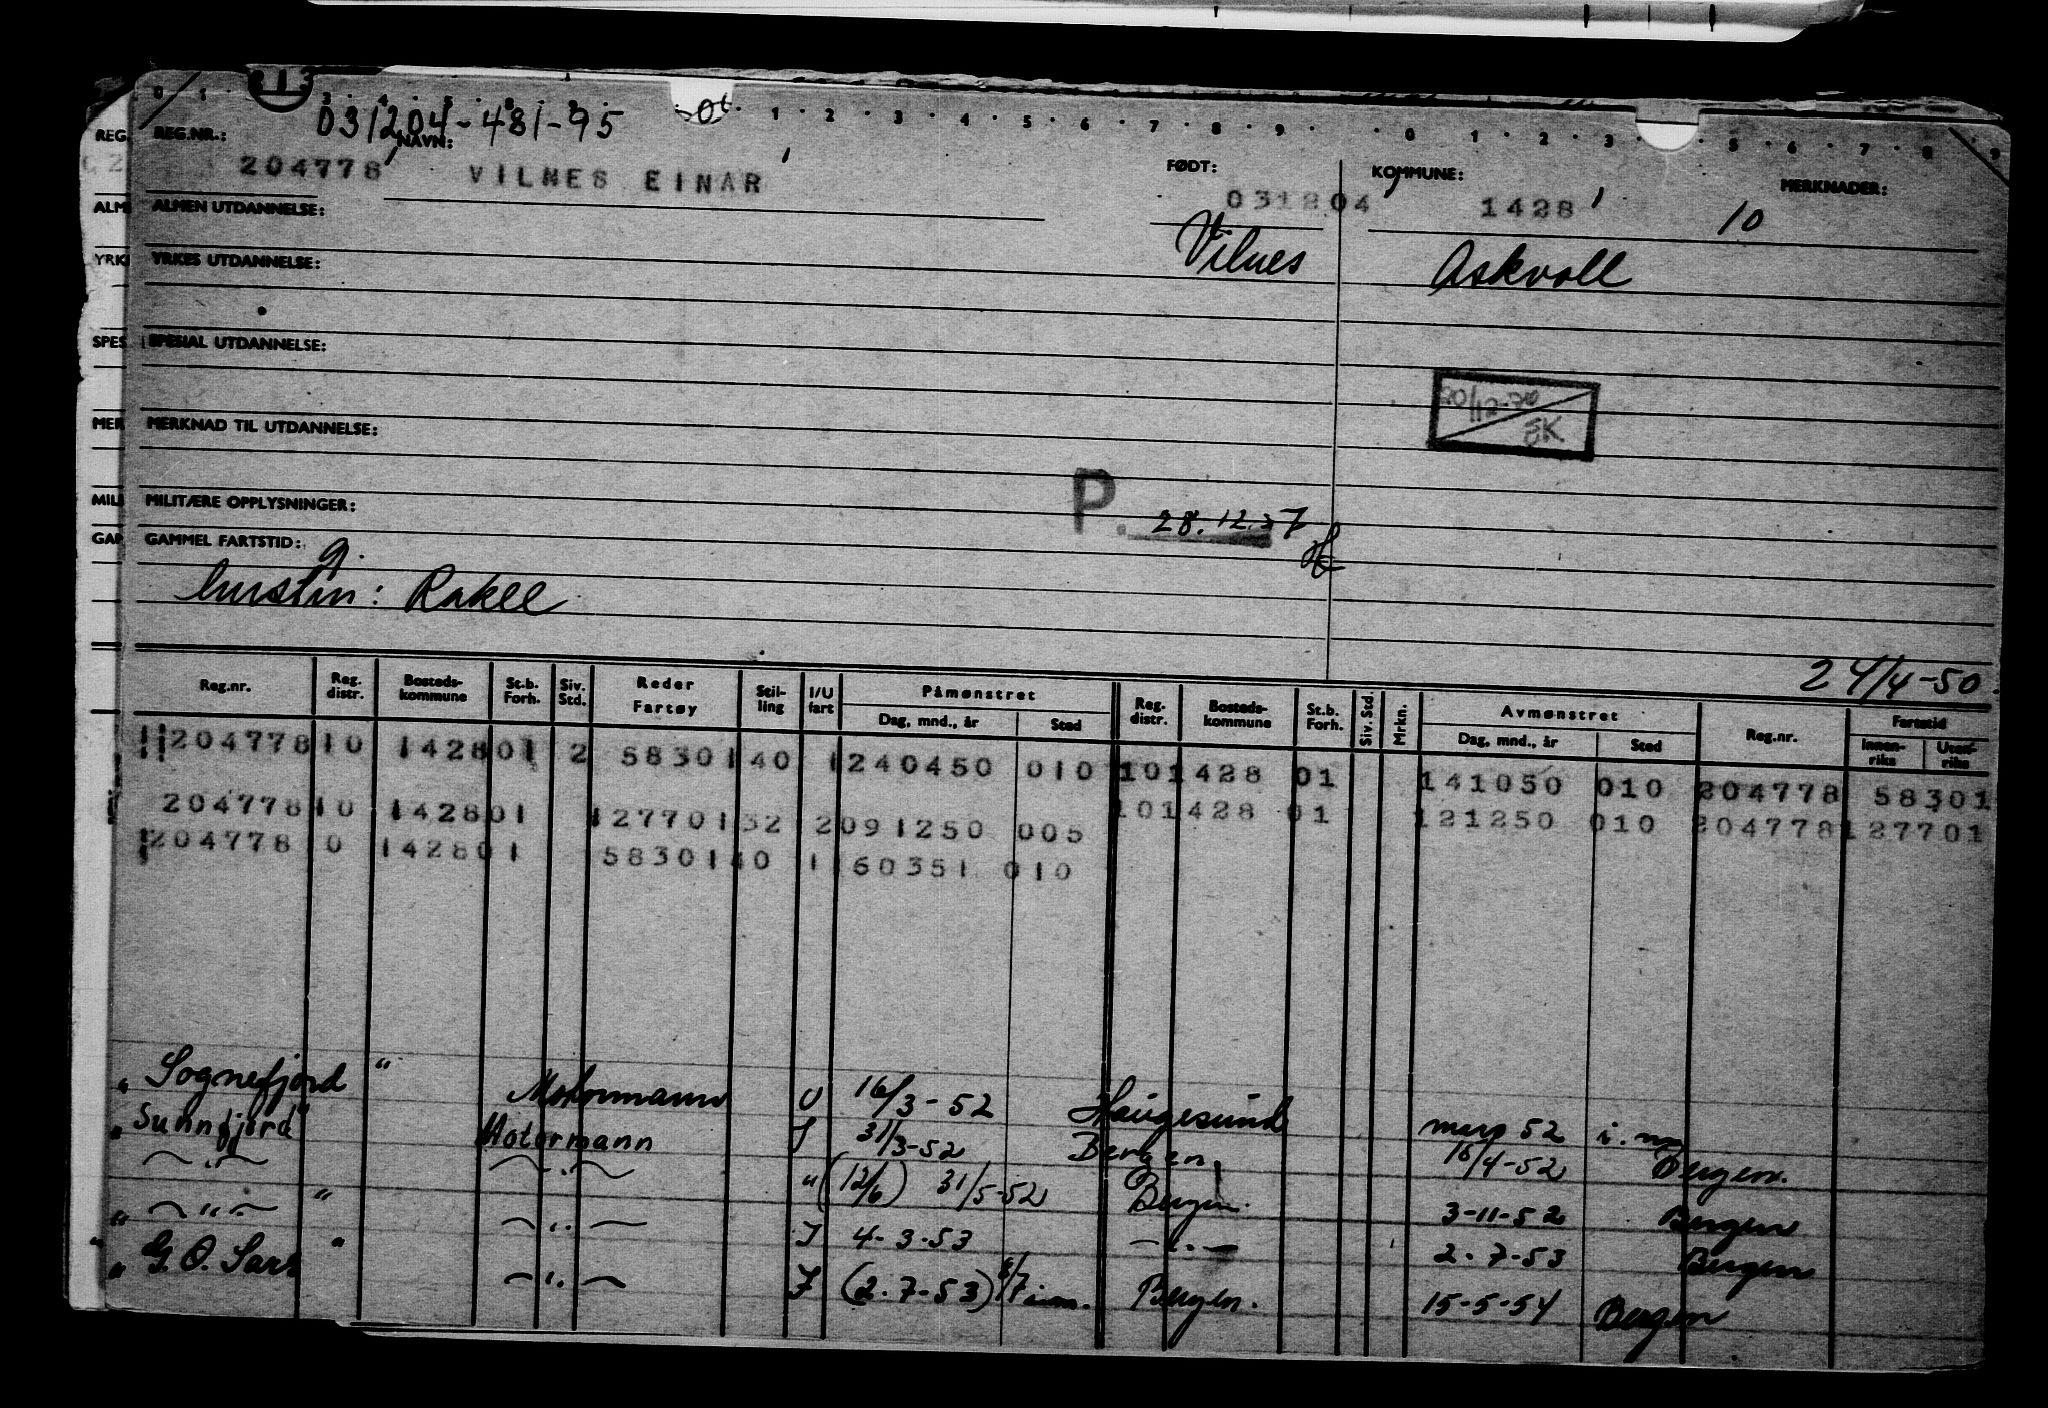 031204-481-95
REG.NR.: NAVN: FØDT: KOMMUNE: MERKNADER:
204778 VILNES EINAR 031204 1428 10
ALMEN UTDANNELSE: Vilnes Askvoll
YRKES UTDANNELSE:
SPESIAL UTDANNELSE:
20/12-70
EK
MERKNAD TIL UTDANNELSE:
MILITÆRE OPPLYSNINGER: P. 28.12.
GAMMEL FARTSTID:
g.
hustru: Rakel
24/4-50.
Reg.nr. Reg. distr. Bosteds-kommune St.b. Forh. Siv. Std. Reder Fartøy Stil-ling I/U fart Påmønstret Reg. distr. Bosteds-kommune St.b. Forh. Siv. Std. Mrkn. Avmønstret Reg.nr. Fartstid
Dag, mnd., år Sted Dag, mnd., år Sted Innen-riks Uten-riks
204778 10 1428 01 2 58301 40 1 240450 010 10 1428 01 141050 010 204778 58301
204778 10 1428 01 127701 32 2 091250 005 10 1428 01 121250 010 204778 127701
204778 0 1428 01 58301 40 1 160351 010
„ Sognefjord “ Motormann U 16/3-52 Haugesund mars 52
„ Sunnfjord “ Motormann I 31/3-52 Bergen 16/4-52 Bergen.
— „ — — „ — " (12/6) 31/5-52 Bergen. 3-11-52 Bergen
„ — „ — “ — „ — I 4-3-53 — „ — 2-7-53 Bergen
„ G. O. Sars “ — „ — I (2-7-53) Bergen. 15-5-54 Bergen